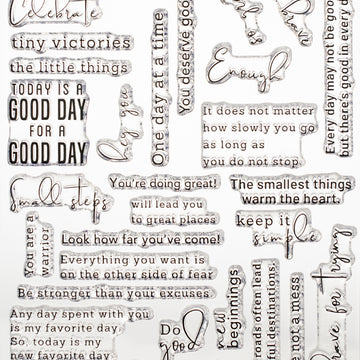 Celebrate
tiny victories
the little things
TODAY IS A
GOOD DAY
FOR A
GOOD DAY
One day at a time
You deserve good
Enough
Every day may not be good
but there's good in every d
It does not matter
how slowly you go
as long as
you do not stop
Small steps
You're doing great!
will lead you
to great places
The smallest things
warm the heart.
You are a
warrior
Look how far you've come!
keep it
simple
Everything you want is
on the other side of fear
Be stronger than your excuses
Any day spent with you
is my favorite day.
So, today is my
new favorite day
Do
good
new
beginnings
roads often lead
ful destinations.
re not a mess.
ave for trying